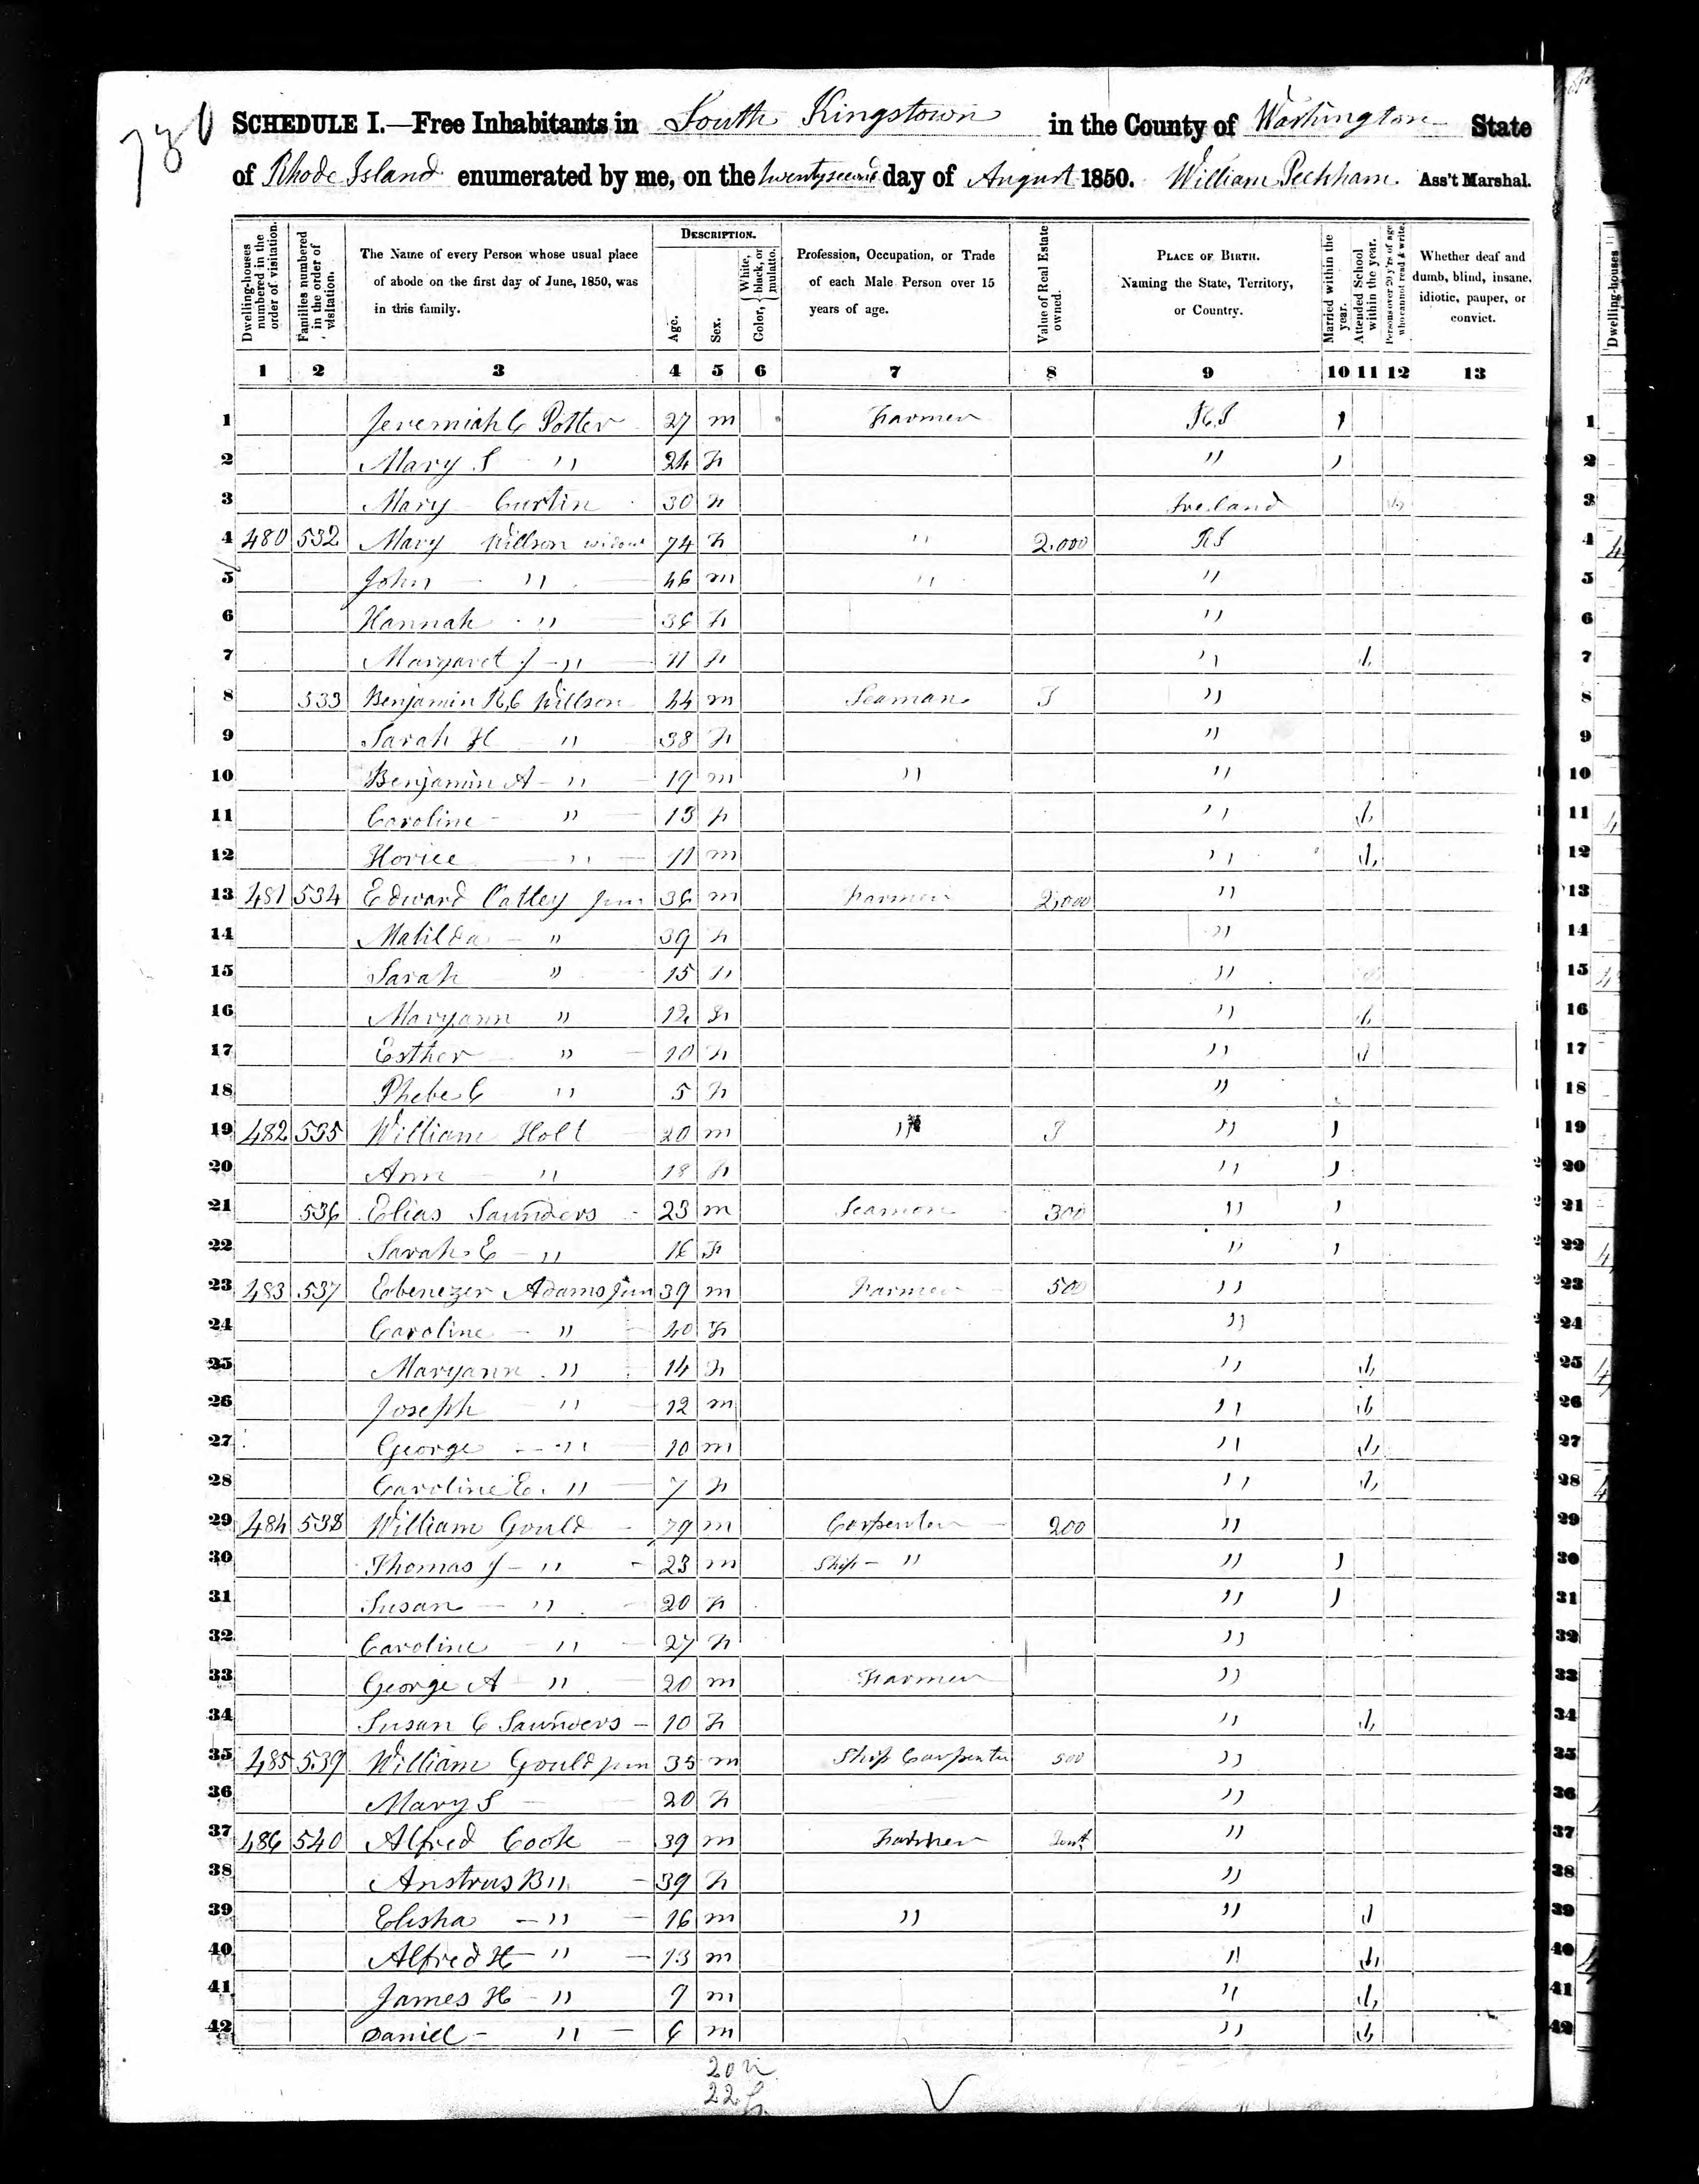 780
SCHEDULE I.—Free Inhabitants in South Kingstown in the County of Washington State
of Rhode Island enumerated by me, on the twenty second day of August 1850. William Peckham Ass't Marshal.
Dwelling-houses numbered in the order of visitation.
Families numbered in the order of visitation.
The Name of every Person whose usual place of abode on the first day of June, 1850, was in this family.
DESCRIPTION.
Age.
Sex.
Color, { White, black, or mulatto.
Profession, Occupation, or Trade of each Male Person over 15 years of age.
Value of Real Estate owned.
PLACE OF BIRTH. Naming the State, Territory, or Country.
Married within the year.
Attended School within the year.
Persons over 20 y'rs of age who cannot read & write.
Whether deaf and dumb, blind, insane, idiotic, pauper, or convict.
1 2 3 4 5 6 7 8 9 10 11 12 13
1 Jeremiah C Potter 27 m Farmer R.I 1
2 Mary S " 24 F " 1
3 Mary Curtin 30 F Ireland
4 480 532 Mary Willson widow 74 F " 2,000 R I
5 John " 46 m " "
6 Hannah " 36 F "
7 Margaret J " 11 F " 1
8 533 Benjamin R C Willson 44 m Seaman "
9 Sarah H " 38 F "
10 Benjamin A " 19 m " "
11 Caroline " 13 F " 1
12 Horice " 11 m " 1
13 481 534 Edward Oatley Jun 36 m Farmer 2,000 "
14 Matilda " 39 F "
15 Sarah " 15 F "
16 Maryann " 12 F " 1
17 Esther " 10 F " 1
18 Phebe C " 5 F "
19 482 535 William Holt 20 m " " 1
20 Ann " 18 F " 1
21 536 Elias Saunders 23 m Seamon 300 " 1
22 Sarah E " 16 F " 1
23 483 537 Ebenezer Adams Jun 39 m Farmer 500 "
24 Caroline " 40 F "
25 Maryann " 14 F " 1
26 Joseph " 12 m " 1
27 George " 10 m " 1
28 Caroline E. " 7 F " 1
29 484 538 William Gould 79 m Carpenter 200 "
30 Thomas J " 23 m Ship - " " 1
31 Susan " 20 F " 1
32 Caroline " 27 F "
33 George A " 20 m Farmer "
34 Susan C Saunders 10 F " 1
35 485 539 William Gould jun 35 m Ship Carpenter 500 "
36 Mary S 20 F "
37 486 540 Alfred Cook 39 m Farmer "
38 Anstrus B " 39 F "
39 Elisha " 16 m " " 1
40 Alfred H " 13 m " 1
41 James H " 9 m " 1
42 Daniel " 6 m " 1
20 m
22 f
Dwelling-houses